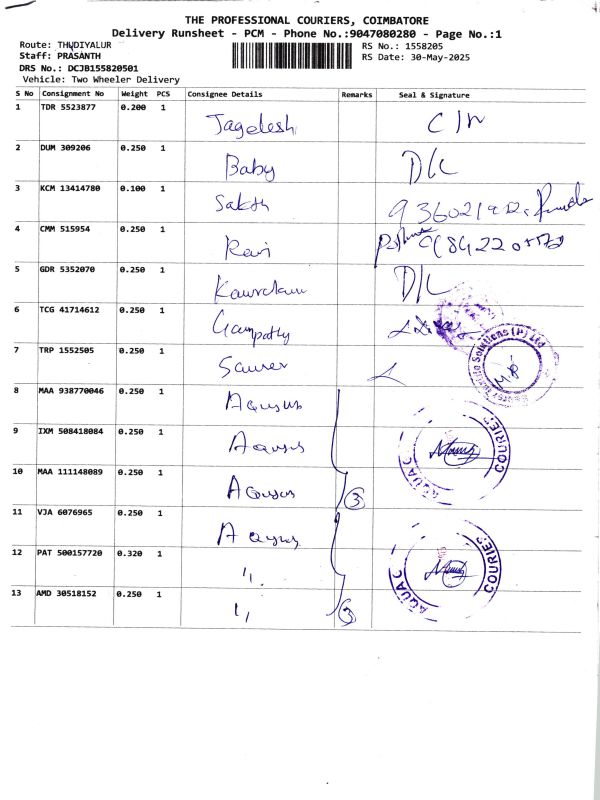 THE PROFESSIONAL COURIERS, COIMBATORE
Delivery Runsheet - PCM - Phone No.:9047080280 - Page No.:1
Route: THUDIYALUR
RS No.: 1558205
Staff: PRASANTH
RS Date: 30-May-2025
DRS No.: DCJB155820501
Vehicle: Two Wheeler Delivery
S No Consignment No Weight PCS Consignee Details Remarks Seal & Signature
1 TDR 5523877 0.200 1 Jagelesh
2 DUM 309206 0.250 1 Baby D/L
3 KCM 13414780 0.100 1 Sakth
4 CMM 515954 0.250 1 Ravi
5 GDR 5352070 0.250 1 D/L
6 TCG 41714612 0.250 1 Gampathy
7 TRP 1552505 0.250 1
8 MAA 938770046 0.250 1
9 IXM 508418084 0.250 1
10 MAA 111148089 0.250 1 3
11 VJA 6076965 0.250 1
12 PAT 500157720 0.320 1 "
13 AMD 30518152 0.250 1 " 3
Solutions (P) Ltd
AQUA COURIER
AQUA COURIER